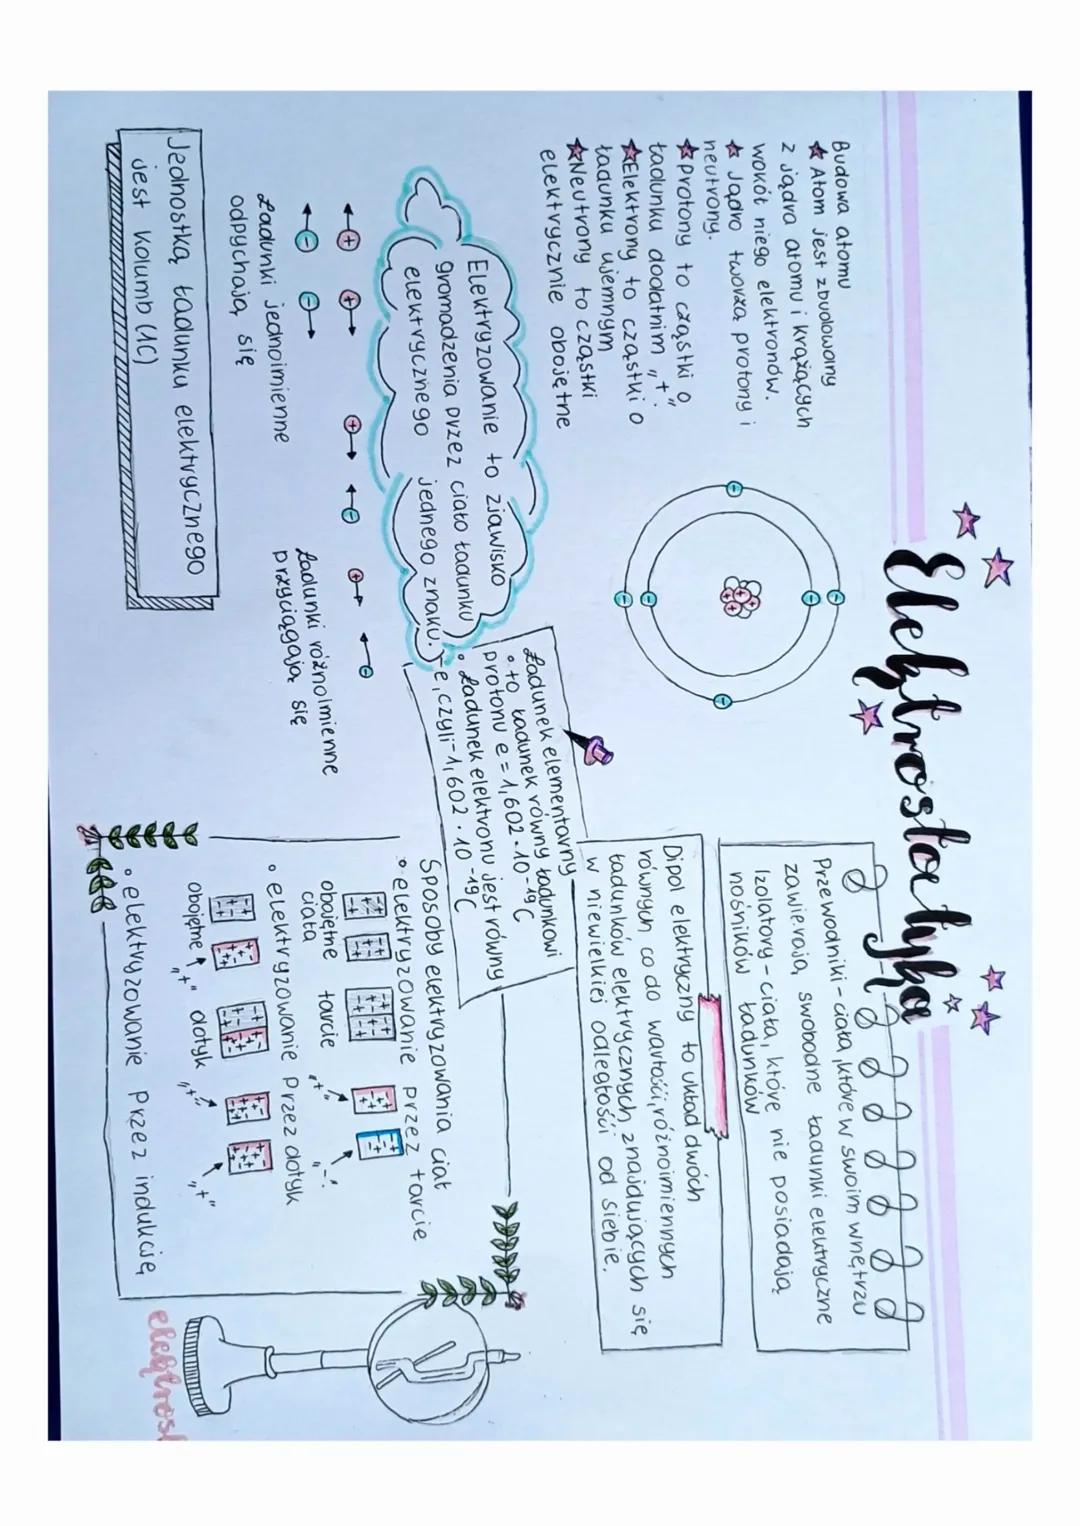 Elektrostatyka
Budowa atomu
Atom jest zbudowany
z jądra atomu i krążących
wokół niego elektronów.
Jądro tworzą protony i
neutrony.
protony to cząstki o
ładunku dodatnim „+".
Elektrony to cząstki o
ładunku ujemnym
Neutrony to cząstki
elektrycznie obojętne
Przewodniki - ciała, które w swoim wnętrzu
zawierają swobodne ładunki elektryczne
Izolatory - ciała, które nie posiadają
nośników ładunków
Dipol elektryczny to układ dwóch
równych co do wartości, różnoimiennych
ładunków elektrycznych, znajdujących się
w niewielkiej odległości od siebie.
Elektryzowanie to zjawisko
gromadzenia przez ciało ładunku
elektrycznego jednego znaku.
Ładunek elementarny
• to ładunek równy ładunkowi
protonu e = 1,602 · 10 -19 C
• Ładunek elektronu jest równy
-e, czyli -1,602 · 10 -19 C
Ładunki jednoimienne
odpychają się
Ładunki różnoimienne
przyciągają się
Jednostką ładunku elektrycznego
jest kolumb (1C)
Sposoby elektryzowania ciał
• elektryzowanie przez tarcie
obojętne tarcie „+" „-"
ciała
• elektryzowanie przez dotyk
obojętne „+" dotyk „+" „+"
• elektryzowanie przez indukcję
elektrosk